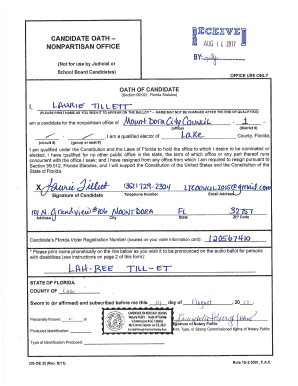 CANDIDATE OATH –
NONPARTISAN OFFICE
(Not for use by Judicial or
School Board Candidates)
RECEIVE
AUG 16 2017
BY:
OFFICE USE ONLY
OATH OF CANDIDATE
(Section 99.021, Florida Statutes)
I, LAURIE TILLETT
(PLEASE PRINT NAME AS YOU WISH IT TO APPEAR ON THE BALLOT * – NAME MAY NOT BE CHANGED AFTER THE END OF QUALIFYING)
am a candidate for the nonpartisan office of Mount Dora City Council, 1
(office) (district #)
I am a qualified elector of Lake County, Florida;
(circuit #) (group or seat #)
I am qualified under the Constitution and the Laws of Florida to hold the office to which I desire to be nominated or
elected; I have qualified for no other public office in the state, the term of which office or any part thereof runs
concurrent with the office I seek; and I have resigned from any office from which I am required to resign pursuant to
Section 99.012, Florida Statutes; and I will support the Constitution of the United States and the Constitution of the
State of Florida.
X Laurie Tillett (352) 729-2304 LTCOUNCIL2015@gmail.com
Signature of Candidate Telephone Number Email Address
101 N. Grandview #106 MOUNT DORA FL 32757
Address City State ZIP Code
Candidate's Florida Voter Registration Number (located on your voter information card): 120567410
* Please print name phonetically on the line below as you wish it to be pronounced on the audio ballot for persons
with disabilities (see instructions on page 2 of this form):
LAH-REE TILL-ET
STATE OF FLORIDA
COUNTY OF Lake
Sworn to (or affirmed) and subscribed before me this day of August, 2017
Personally Known: or
Produced Identification:
Type of Identification Produced:
Signature of Notary Public
Print, Type, or Stamp Commissioned Name of Notary Public
DS-DE 25 (Rev. 5/11)
Rule 1S-2.0001, F.A.C.